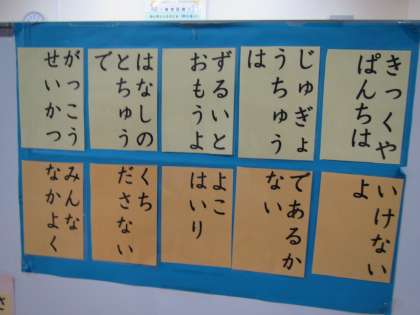 きっくや
ぱんちは
いけない
よ
じゅぎょ
うちゅう
は
であるか
ない
ずるいと
おもうよ
よこ
はいり
はなしの
とちゅう
で
くち
ださない
がっこう
せいかつ
みんな
なかよく